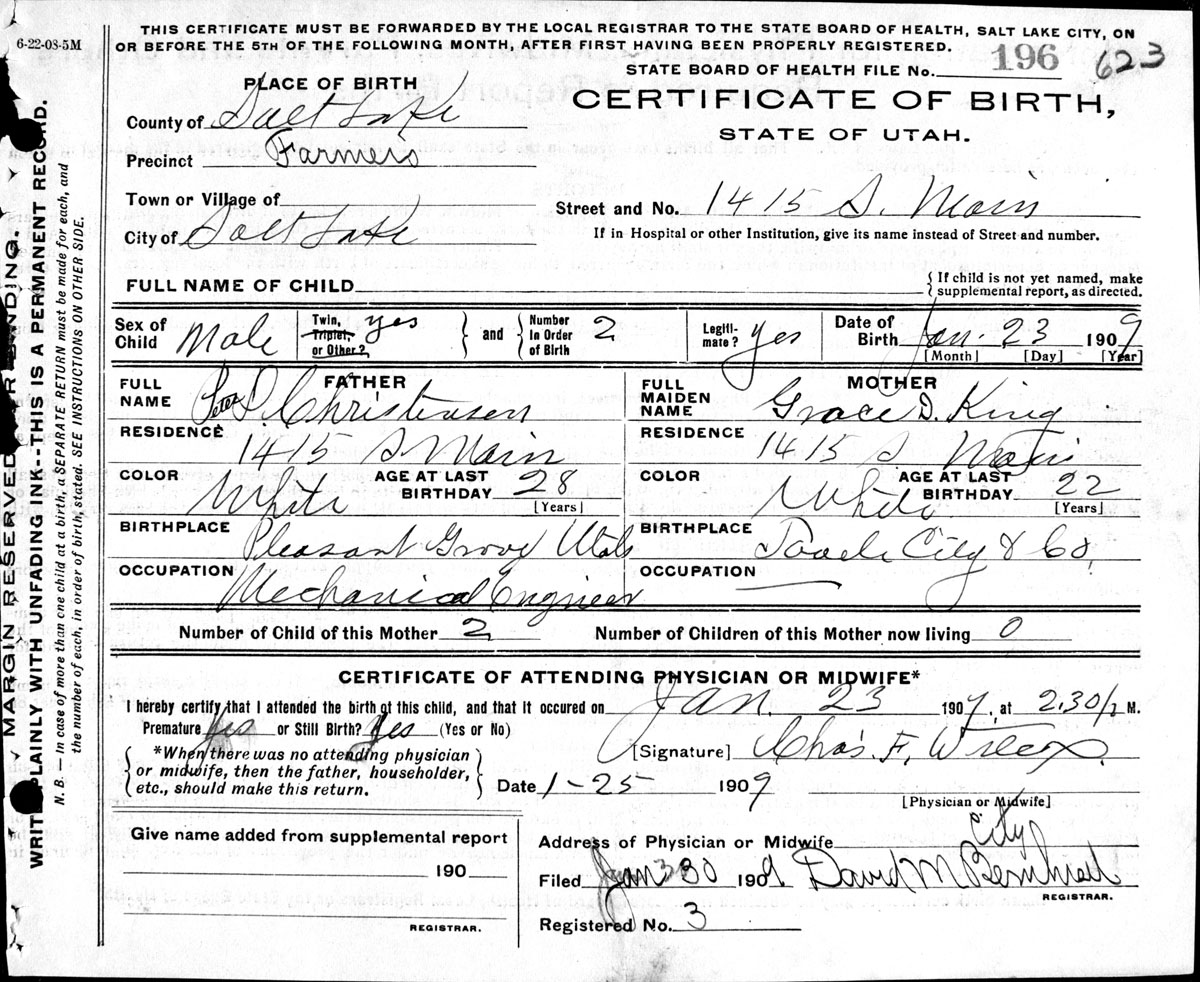 6-22-08-5M
THIS CERTIFICATE MUST BE FORWARDED BY THE LOCAL REGISTRAR TO THE STATE BOARD OF HEALTH, SALT LAKE CITY, ON
OR BEFORE THE 5TH OF THE FOLLOWING MONTH, AFTER FIRST HAVING BEEN PROPERLY REGISTERED.
STATE BOARD OF HEALTH FILE No. 196 623
CERTIFICATE OF BIRTH,
STATE OF UTAH.
PLACE OF BIRTH
County of Salt Lake
Precinct Farmers
Town or Village of
City of Salt Lake
Street and No. 1415 S. Main
If in Hospital or other Institution, give its name instead of Street and number.
FULL NAME OF CHILD
{If child is not yet named, make
supplemental report, as directed.
Sex of Child Male
Twin, Triplet, or Other? yes
and
Number in Order of Birth 2
Legiti-mate? yes
Date of Birth Jan. 23 1909
[Month] [Day] [Year]
FATHER
FULL NAME Peter D. Christensen
RESIDENCE 1415 S Main
COLOR White
AGE AT LAST BIRTHDAY 28
[Years]
BIRTHPLACE Pleasant Grove Utah
OCCUPATION Mechanical Engineer
MOTHER
FULL MAIDEN NAME Grace D. King
RESIDENCE 1415 S Main
COLOR White
AGE AT LAST BIRTHDAY 22
[Years]
BIRTHPLACE Tooele City & Co.
OCCUPATION
Number of Child of this Mother 2
Number of Children of this Mother now living 0
CERTIFICATE OF ATTENDING PHYSICIAN OR MIDWIFE*
I hereby certify that I attended the birth of this child, and that it occured on Jan. 23 1909, at 2.30 P M.
Premature yes or Still Birth? Yes (Yes or No)
*When there was no attending physician
or midwife, then the father, householder,
etc., should make this return.
[Signature] Chas. F. Wilcox.
Date 1-25 1909
[Physician or Midwife]
Give name added from supplemental report
190
REGISTRAR.
Address of Physician or Midwife City
Filed Jan 30 1909. David M
REGISTRAR.
Registered No. 3
MARGIN RESERVED FOR BINDING.
WRITE PLAINLY WITH UNFADING INK--THIS IS A PERMANENT RECORD.
N. B.—In case of more than one child at a birth, a SEPARATE RETURN must be made for each, and
the number of each, in order of birth, stated. SEE INSTRUCTIONS ON OTHER SIDE.